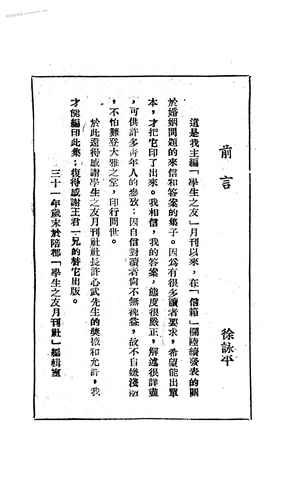 前言
徐詠平
這是我主編「學生之友」月刊以來，在「信箱」欄陸續發表的關
於婚姻問題的來信和答案的集子。因為有很多讀者要求，希望能出單
本，才把它印了出來。我相信，我的答案，態度很嚴正，解述很詳盡
，可供許多青年人的參致；因自信對讀者尚不無裨益，故不自嫌淺
，不怕難登大雅之堂，印行問世。
於此還得感謝學生之友月刊社社長許心武先生的獎掖和允許，我
才能編印此集；復得感謝王君一兄的替它出版。
三十一年歲末於陪都「學生之友月刊社」編輯室